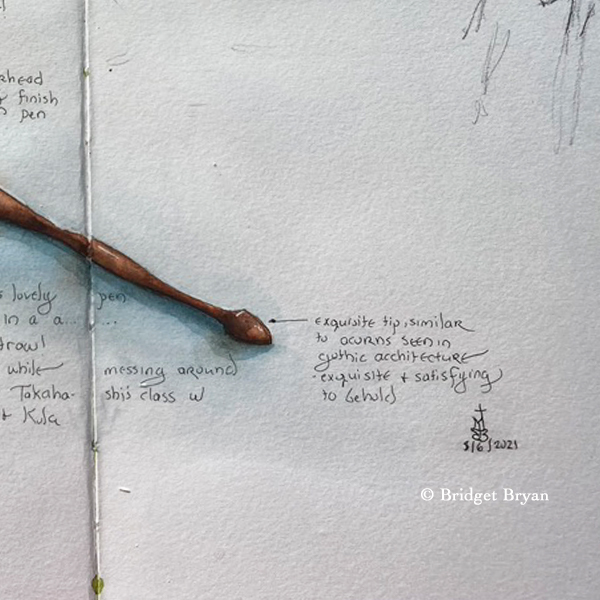 rhead
finish
pen
s lovely pen
in a a... ...
trawl
while messing around
Takaha- shi's class w
+ Kula
exquisite tip, similar
to acorns seen in
gothic architecture
- exquisite + satisfying
to behold
5/6/2021
© Bridget Bryan